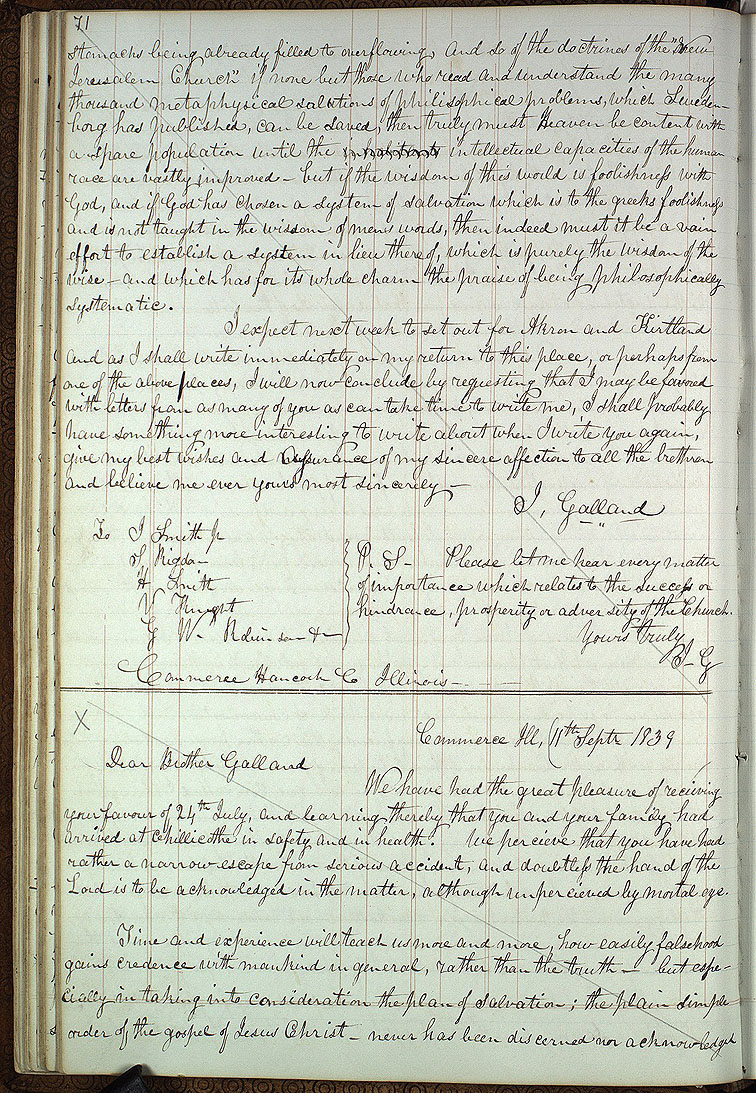 71
stomachs being already filled to overflowing, and so of the doctrines of the "New
Jerusalem Church" if none but those who read and understand the many
thousand metaphysical solutions of philisophical problems, which Sweden-
borg has published, can be saved, then truly must Heaven be content with
a spare population until the intellectual capacities of the human
race are vastly improved – but if the wisdom of this world is foolishness with
God, and if God has chosen a system of salvation which is to the greeks foolishness
and is not taught in the wisdom of mens words, then indeed must it be a vain
effort to establish a system in lieu thereof, which is purely the wisdom of the
wise – and which has for its whole charm the praise of being philosophically
systematic.
I expect next week to set out for Akron and Kirtland
and as I shall write immediately on my return to this place, or perhaps from
one of the above places, I will now conclude by requesting that I may be favored
with letters from as many of you as can take time to write me, I shall probably
have something more interesting to write about when I write you again,
give my best wishes and assurance of my sincere affection to all the brethren
and believe me ever yours most sincerely –
I, Galland
To J Smith Jr
S, Rigdon
H Smith
V Knight
G W. Robinson &
P. S – Please let me hear every matter
of importance which relates to the success or
hindrance, prosperity or adversity of the Church.
Yours truly
I – G
Commerce Hancock Co Illinois –
X
Commerce Ill, (11th Septr 1839
Dear Brother Galland
We have had the great pleasure of receiving
your favour of 24th July, and learning thereby that you and your family had
arrived at Chillicothe in safety and in health. We percieve that you have had
rather a narrow escape from serious accident, and doubtless the hand of the
Lord is to be acknowledged in the matter, although unpercieved by mortal eye.
Time and experience will teach us more and more, how easily falsehood
gains credence with mankind in general, rather than the truth – but espe-
cially in taking into consideration the plan of salvation; the plain simple
order of the gospel of Jesus Christ – never has been discerned nor acknowledged